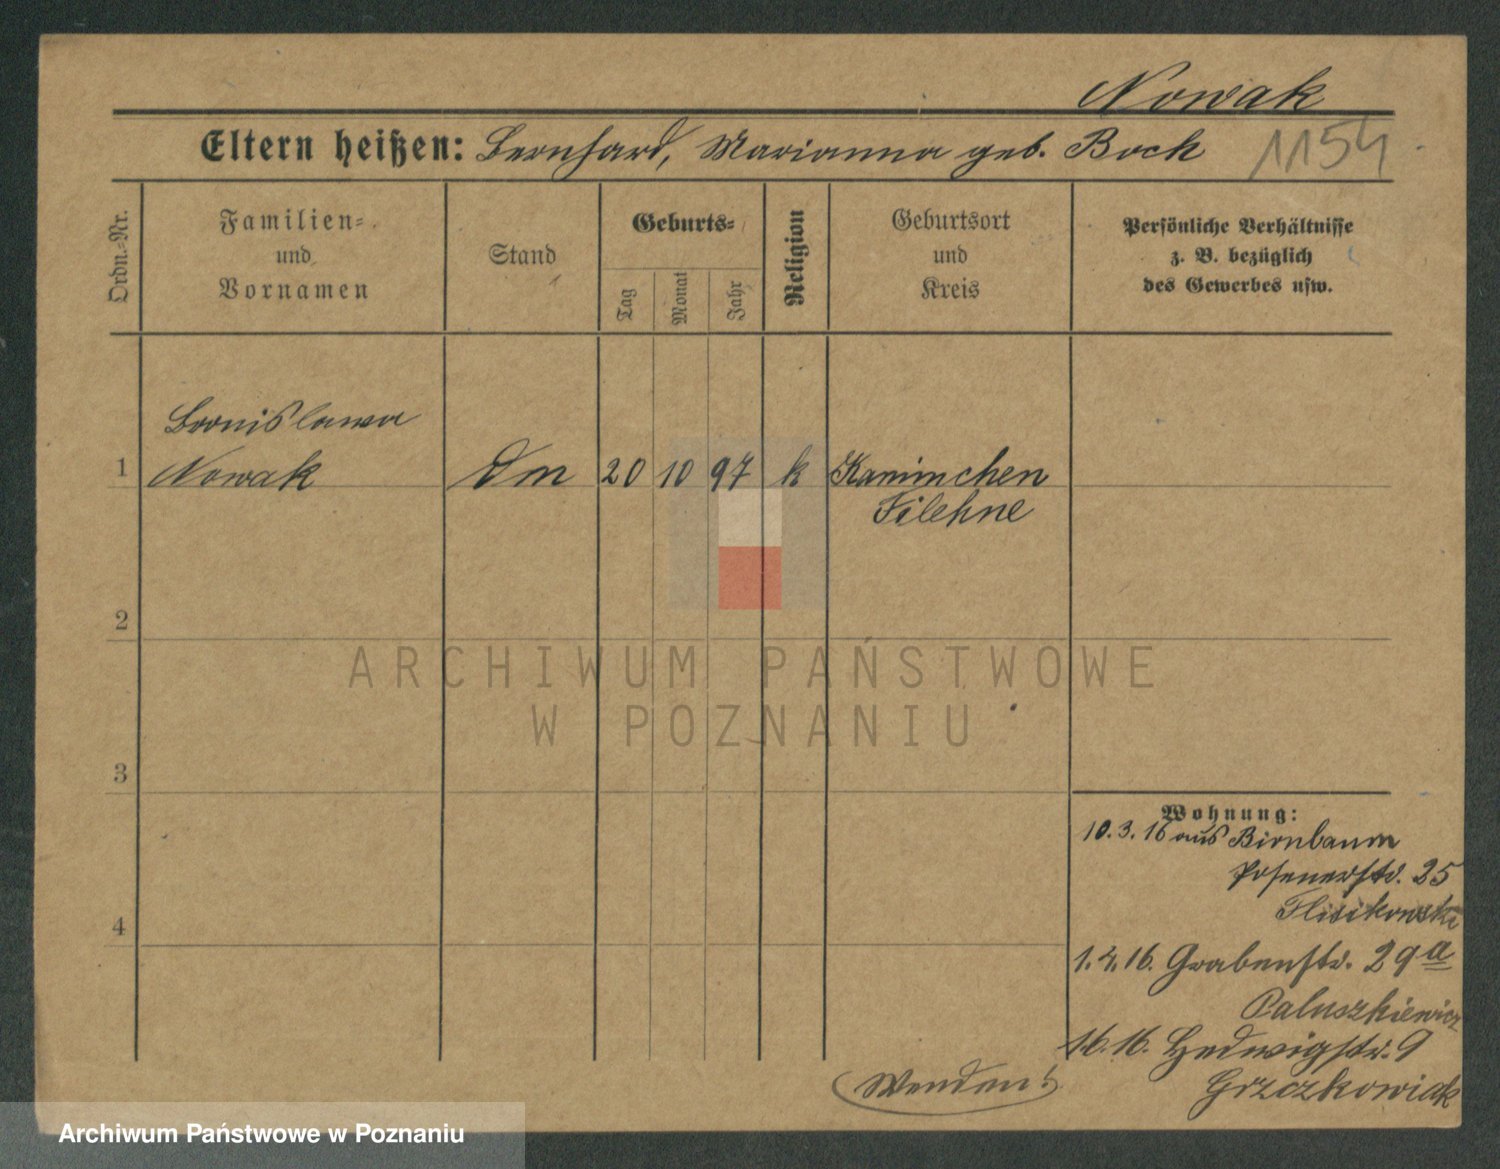 Nowak
Eltern heißen: Bernhard, Marianna geb. Bock 1154
Ordn.=Nr.
Familien=
und
Vornamen
Stand
Geburts=
Tag
Monat
Jahr
Religion
Geburtsort
und
Kreis
Persönliche Verhältnisse
z. B. bezüglich
des Gewerbes usw.
Bronislawa
1 Nowak Dm 20 10 97 k Kaminchen
Filehne
2
ARCHIWUM PAŃSTWOWE
W POZNANIU
3
Wohnung:
10.3.16 aus Birnbaum
Posenerstr. 25
Flisikowski
4
1.4.16. Grabenstr. 29a
Paluszkiewicz
1.6.16. Hedwigstr. 9
Wenden!
Grzczkowiak
Archiwum Państwowe w Poznaniu